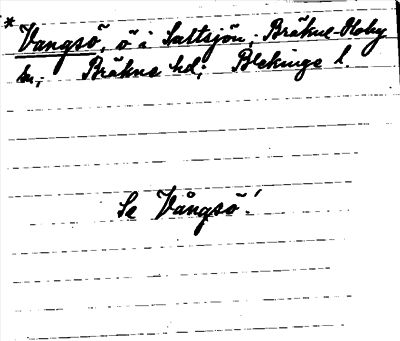 * Vangsö, ö i Saltsjön, Bräkne-Hoby
sn, Bräkne hd; Blekinge l.
Se Vångsö!